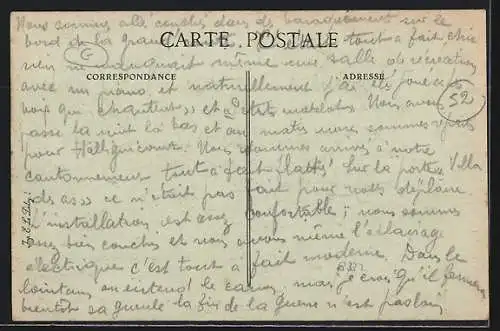 Nous sommes allé coucher dans des baraquement sur le
bord de la grande
CARTE POSTALE
tout a fait chic
rien ne manquait même une salle de récréation
CORRESPONDANCE
ADRESSE
avec un piano et naturellement j'ai été joué
voix qui chantent » et « P'tits matelots. Nous avons
52
passé la nuit la bas et au matin nous sommes repartis
pour Halligicourt. Nous sommes arrivés à notre
cantonnement tout à fait flattés Sur la porte « Villa
des as » ce n'était pas fait pour nous déplaire.
L'installation est assez confortable; nous sommes
assez bien couchés et nous avons même l'éclairage
électrique c'est tout à fait moderne. Dans le
lointain on entend le canon, mais je crois qu'il fermera
bientôt sa gueule la fin de la guerre n'est pas loin